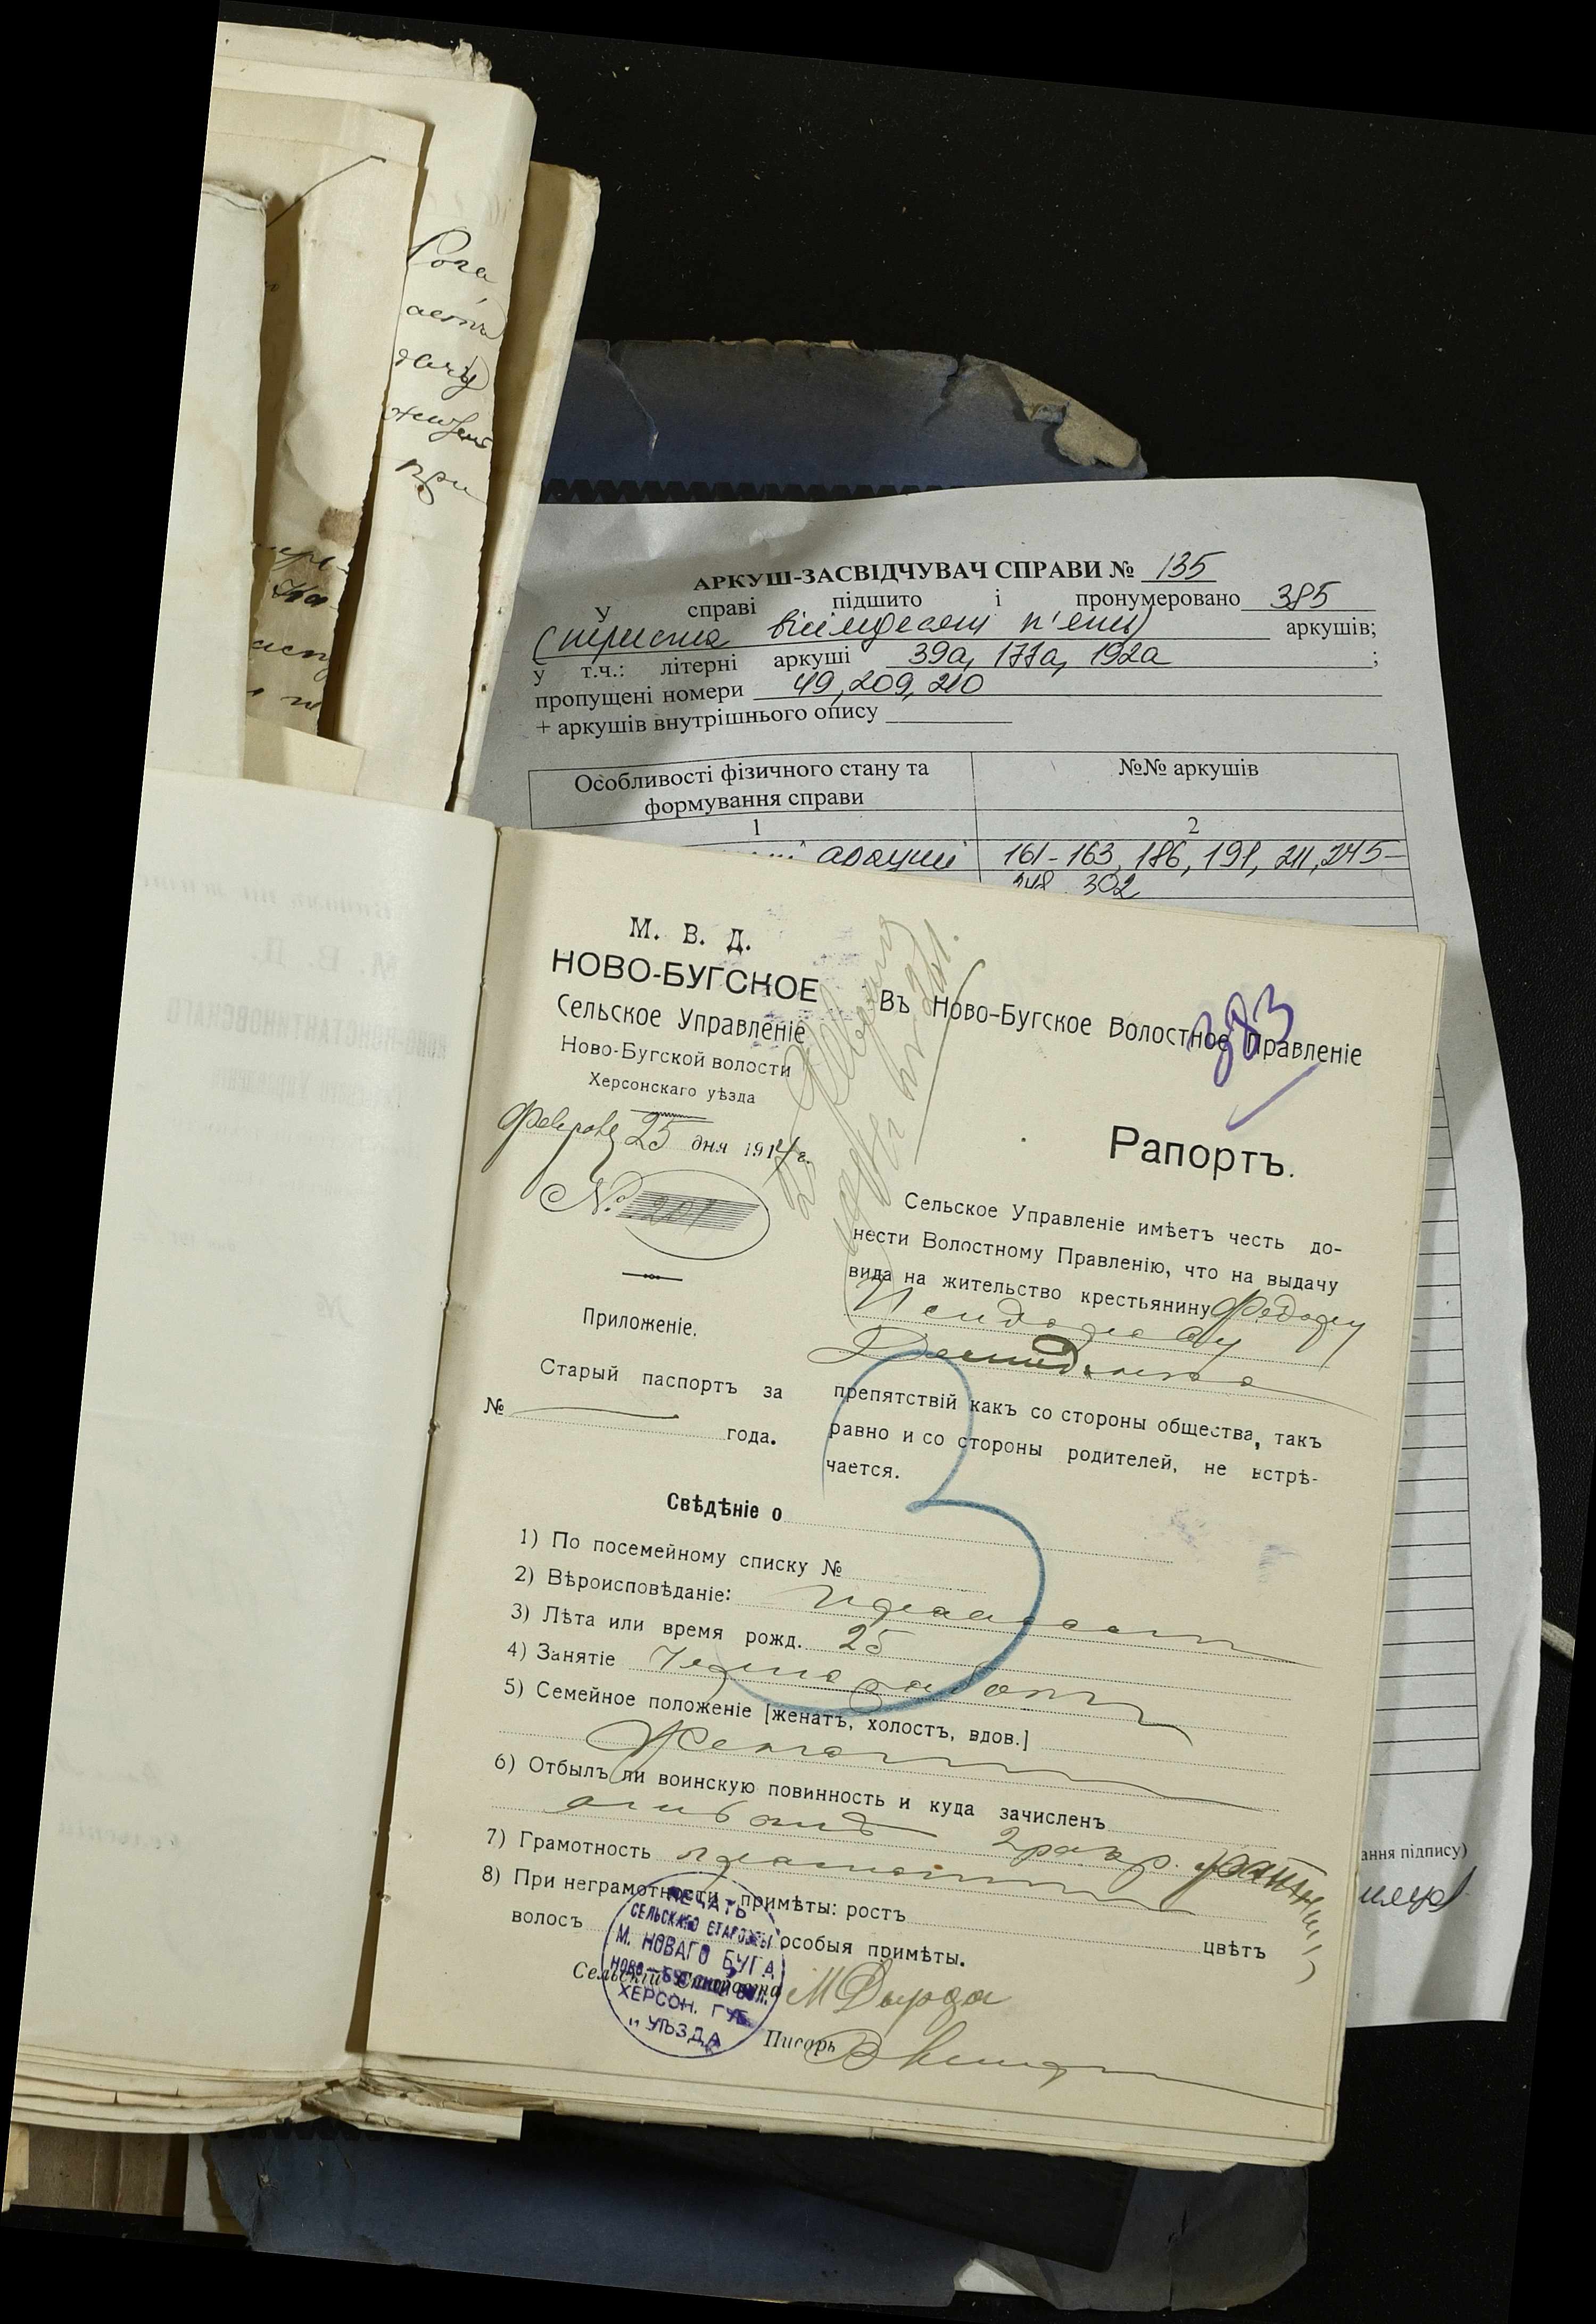 Рога
при
АРКУШ-ЗАСВІДЧУВАЧ СПРАВИ № 135
У справі підшито і пронумеровано 385
(триста вісімдесят п'ять) аркушів;
у т.ч.: літерні аркуші 39а, 177а, 192а ;
пропущені номери 49, 209, 210
+ аркушів внутрішнього опису
Особливості фізичного стану та формування справи
№№ аркушів
1
2
аркуші 161-163, 186, 191, 211, 245-
248, 302
ання підпису)
М. В. Д.
НОВО-БУГСКОЕ
Сельское Управленіе
Ново-Бугской волости
Херсонскаго уѣзда
Февраля 25 дня 1914 г.
№ 201
Приложеніе.
Старый паспортъ за
№
года.
383
Въ Ново-Бугское Волостное Правленіе
Рапортъ.
Сельское Управленіе имѣетъ честь до-
нести Волостному Правленію, что на выдачу
вида на жительство крестьянину Федору
Исидорову
Демиденко
препятствій какъ со стороны общества, такъ
равно и со стороны родителей, не встрѣ-
чается.
3
Свѣдѣніе о
1) По посемейному списку №
2) Вѣроисповѣданіе: православн
3) Лѣта или время рожд. 25
4) Занятіе Чернорабоч
5) Семейное положеніе [женатъ, холостъ, вдов.]
Женат
6) Отбылъ ли воинскую повинность и куда зачисленъ
2 разр. ратник
7) Грамотность грамотн
8) При неграмотности примѣты: ростъ
цвѣтъ
волосъ особыя примѣты.
Сельскій Староста М Дырда
Писарь
ПЕЧАТЬ
СЕЛЬСКАГО СТАРОСТЫ
М. НОВАГО БУГА
НОВО-БУГСКОЙ ВОЛ.
ХЕРСОН. ГУБ.
„ УѢЗДА